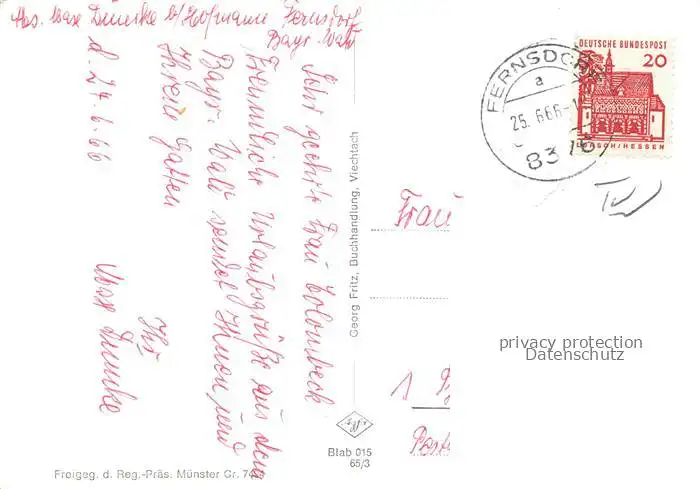 Abs. Max Dumke b/Hofmann Fernsdorf
Bayr. Wald
d. 24.6.66
Sehr geehrte Frau Colombeck
Freundliche Urlaubsgrüße aus dem
Bayr. Wald sendet Ihnen und
Ihrem Gatten
Ihr
Max Dumke
Georg Fritz, Buchhandlung, Viechtach
Btab 015
65/3
Freigeg. d. Reg.-Präs. Münster Gr.
DEUTSCHE BUNDESPOST
20
LORSCH/HESSEN
FERNSDORF
a
25. 6.66
Frau
1
Post
privacy protection
Datenschutz